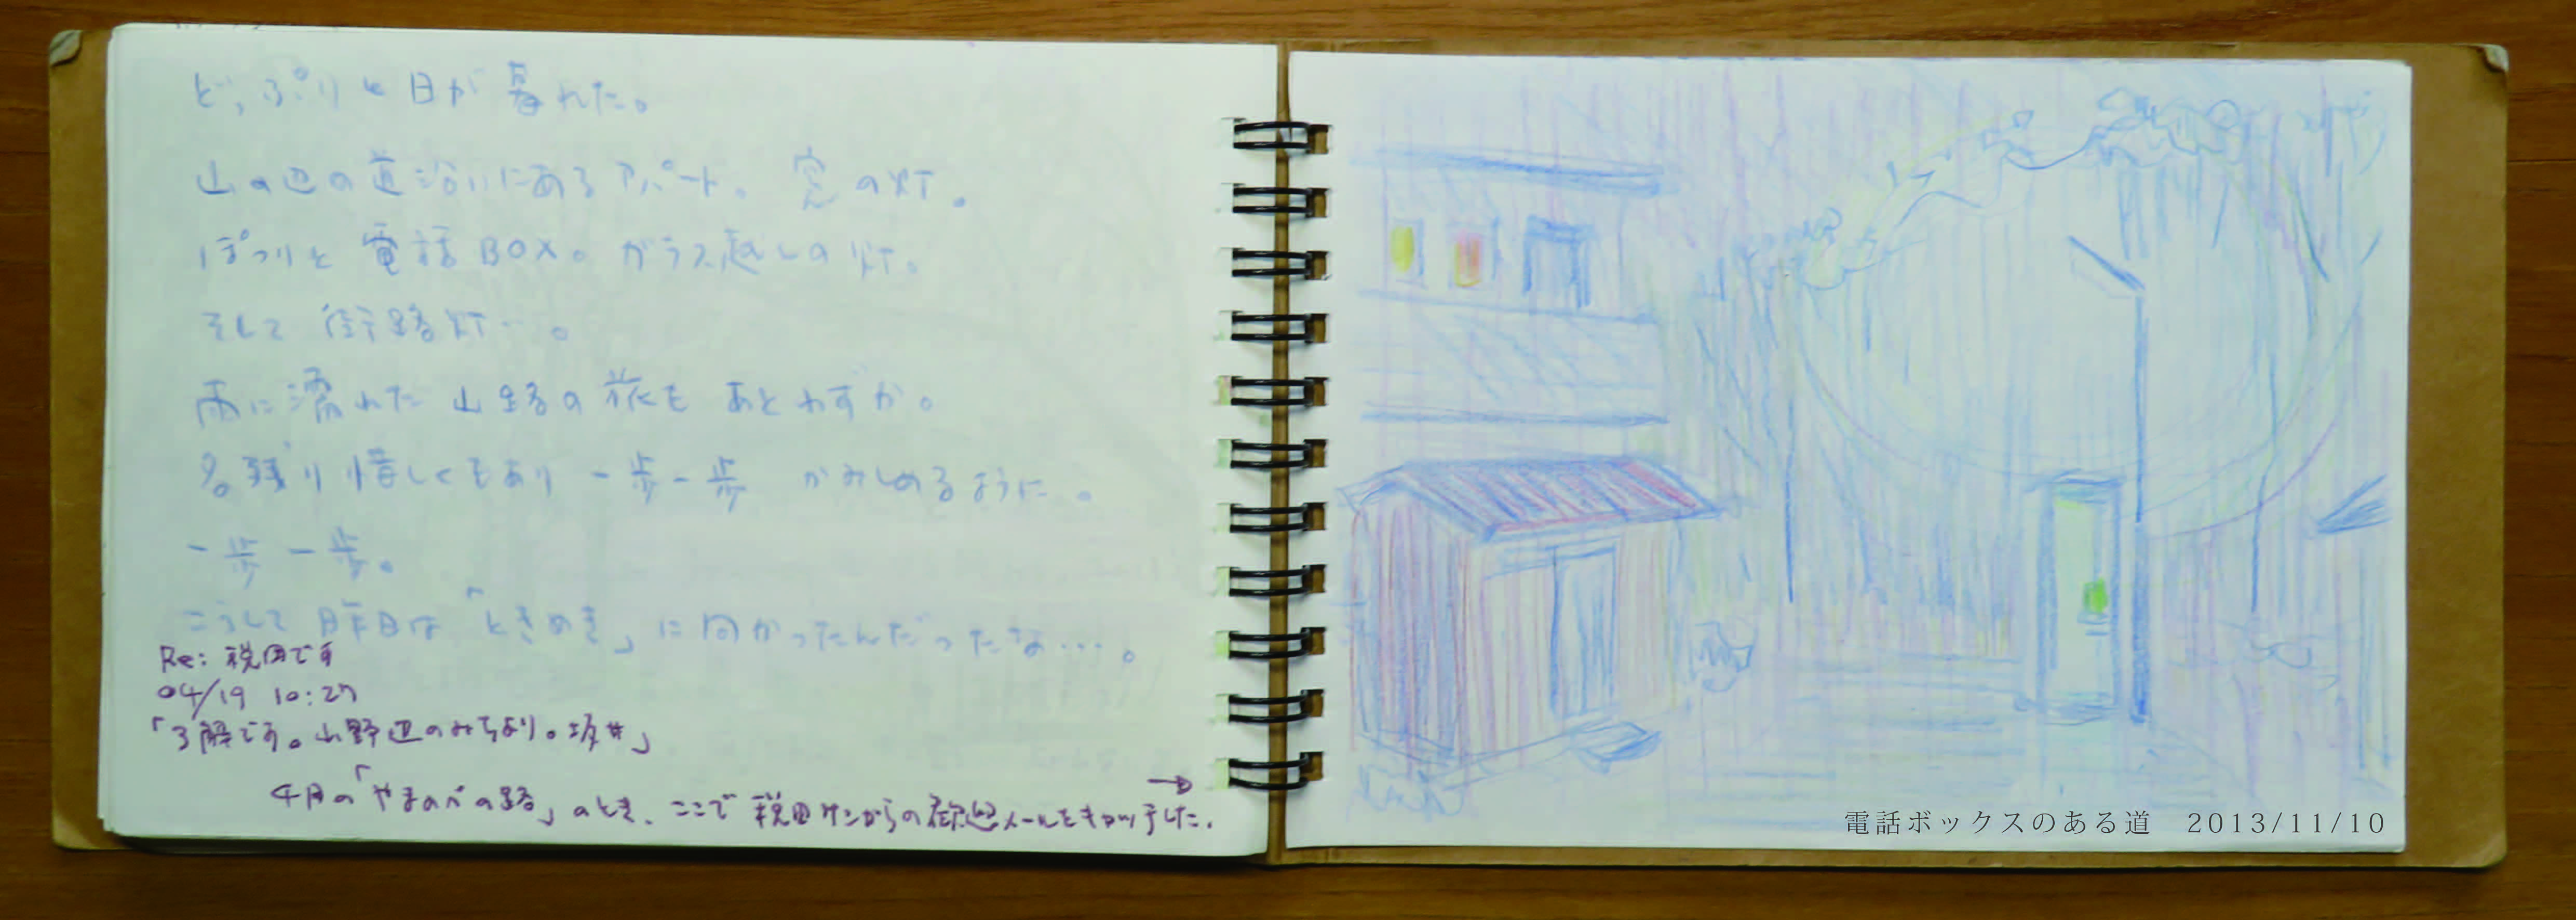 どっぷりと日が暮れた。
山の辺の道沿いにあるアパート。窓の灯。
ぽつりと電話BOX。ガラス越しの灯。
そして街路灯…。
雨に濡れた山路の旅もあとわずか。
名残り惜しくもあり一歩一歩かみしめるように。
一歩一歩。
こうして昨日は「ときめき」に向かったんだったな…。
Re: 税田です
04/19 10:27
「了解です。山野辺のみちより。坂井」
→
4月の「やまのべの路」のとき、ここで税田サンからの歓迎メールをキャッチした.
電話ボックスのある道 2013/11/10